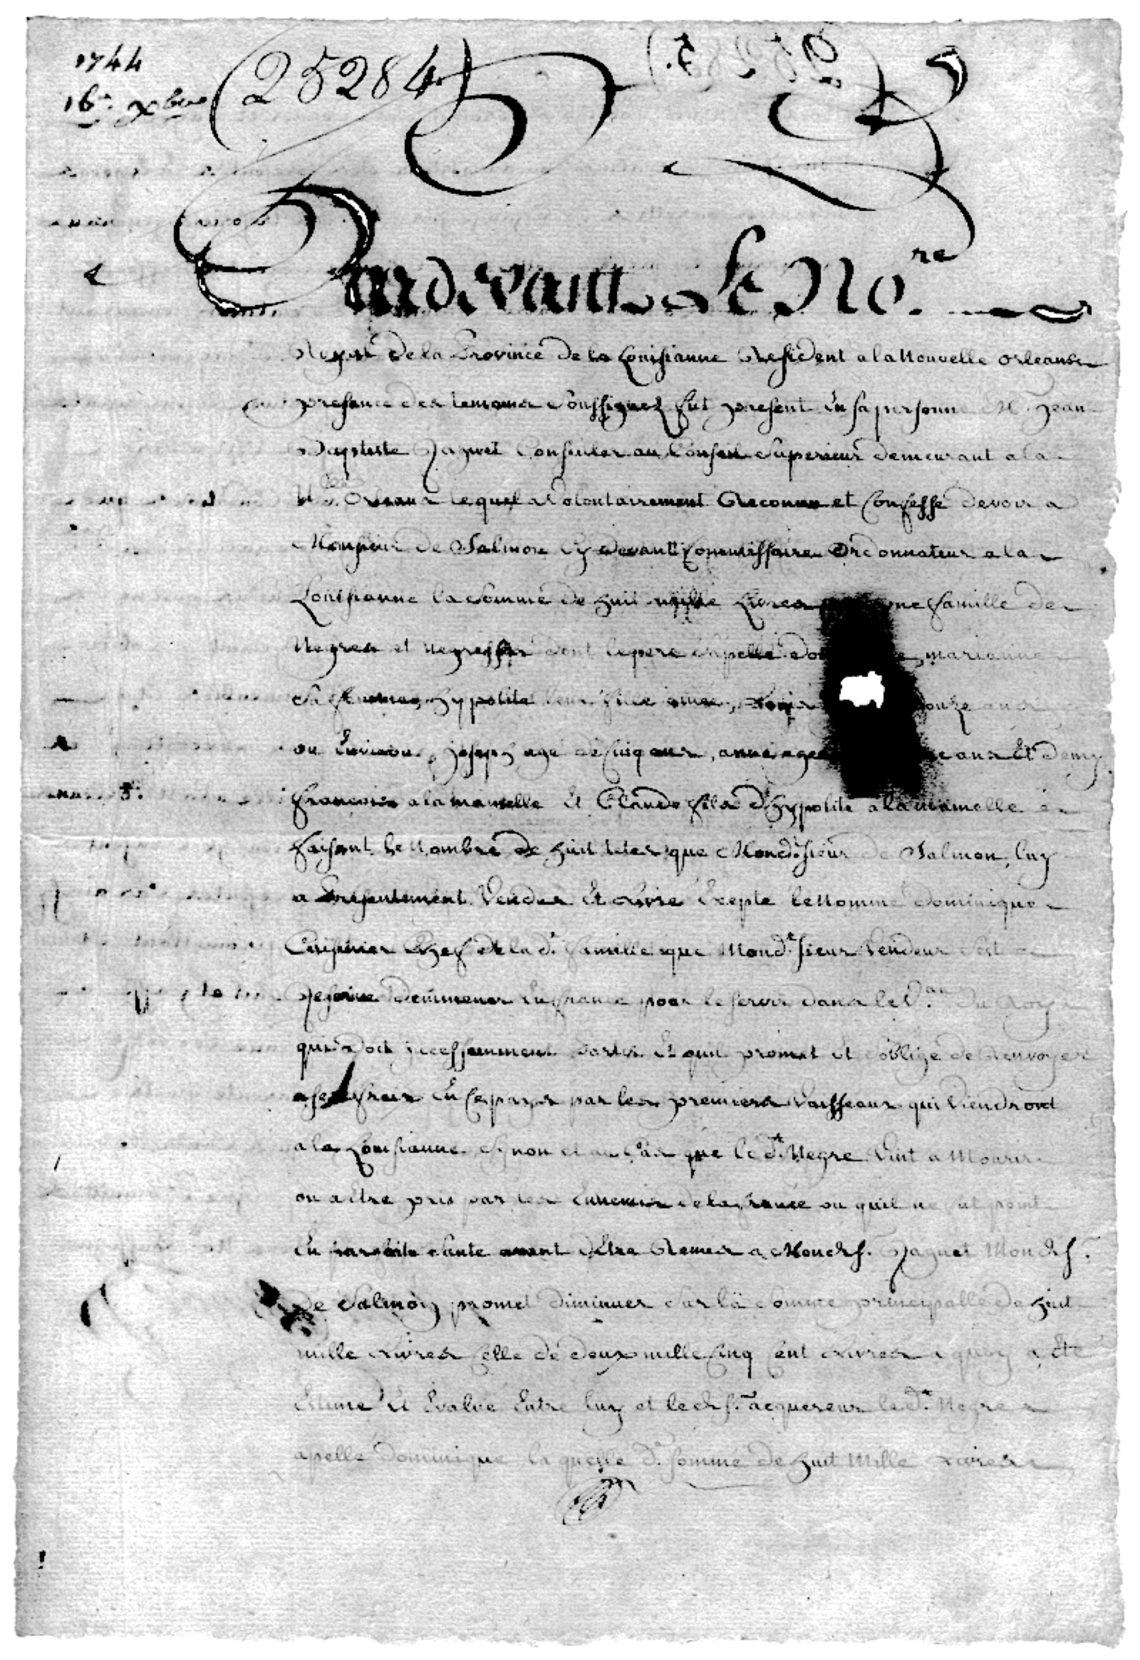 1744
16e. xbre (25284)
Pardevant Le No.re
Royal de la Province de la Louisianne Resident a la Nouvelle Orleans En
presance des temoins Soussignez fut present En sa personne M. Jean
Baptiste Jaquet Conseiller au Conseil Superieur demeurant a la
Nlle. Orleans lequel a Volontairement Reconnu et Confessé devoir a
Monsieur de Salmon Cy devant Commissaire Ordonnateur a la
Louisianne la Somme de huit mille Livres une famille de
Negres et Negresses dont le pere apellé marianne
Sa femme, hypolite leur fille ainée, Louis douze ans
ou Environ, joseph agé de Cinq ans, anne agée ans Et demy
francois a la mamelle Et Claude fils d'hypolite a la mamelle
faisant le Nombre de huit tetes que Mond. Sieur de Salmon, luy
a Presentement Vendu Et Livré Excepté le Nommé Dominique
Cuisinier Chef de la d. famille que Mond.t Sieur Vendeur s'est
Reservé D'emmener En france pour le servir dans le V.au Du Roy
qui doit incessamment partir Et qu'il promet et s'oblige de Renvoyer
a ses frais En Ces pays par les premiers Vaisseaux qui Viendront
a la Louisianne Sinon et au Cas que le d.t Negre Vint a Mourir
ou a Etre pris par les Ennemis de la france ou qu'il ne fut point
En parfaite Santé avant d'Etre Remis a Mond.S. Jaquet Mond.S.
De Salmon promet diminuer Sur la Somme principalle de huit
mille Livres Celle de deux mille Cinq Cent Livres a quoy a Eté
Estimé Et Evalué Entre luy et le d.S. acquereur le d.t Negre
apellé Dominique la quelle d. Somme de huit Mille Livres